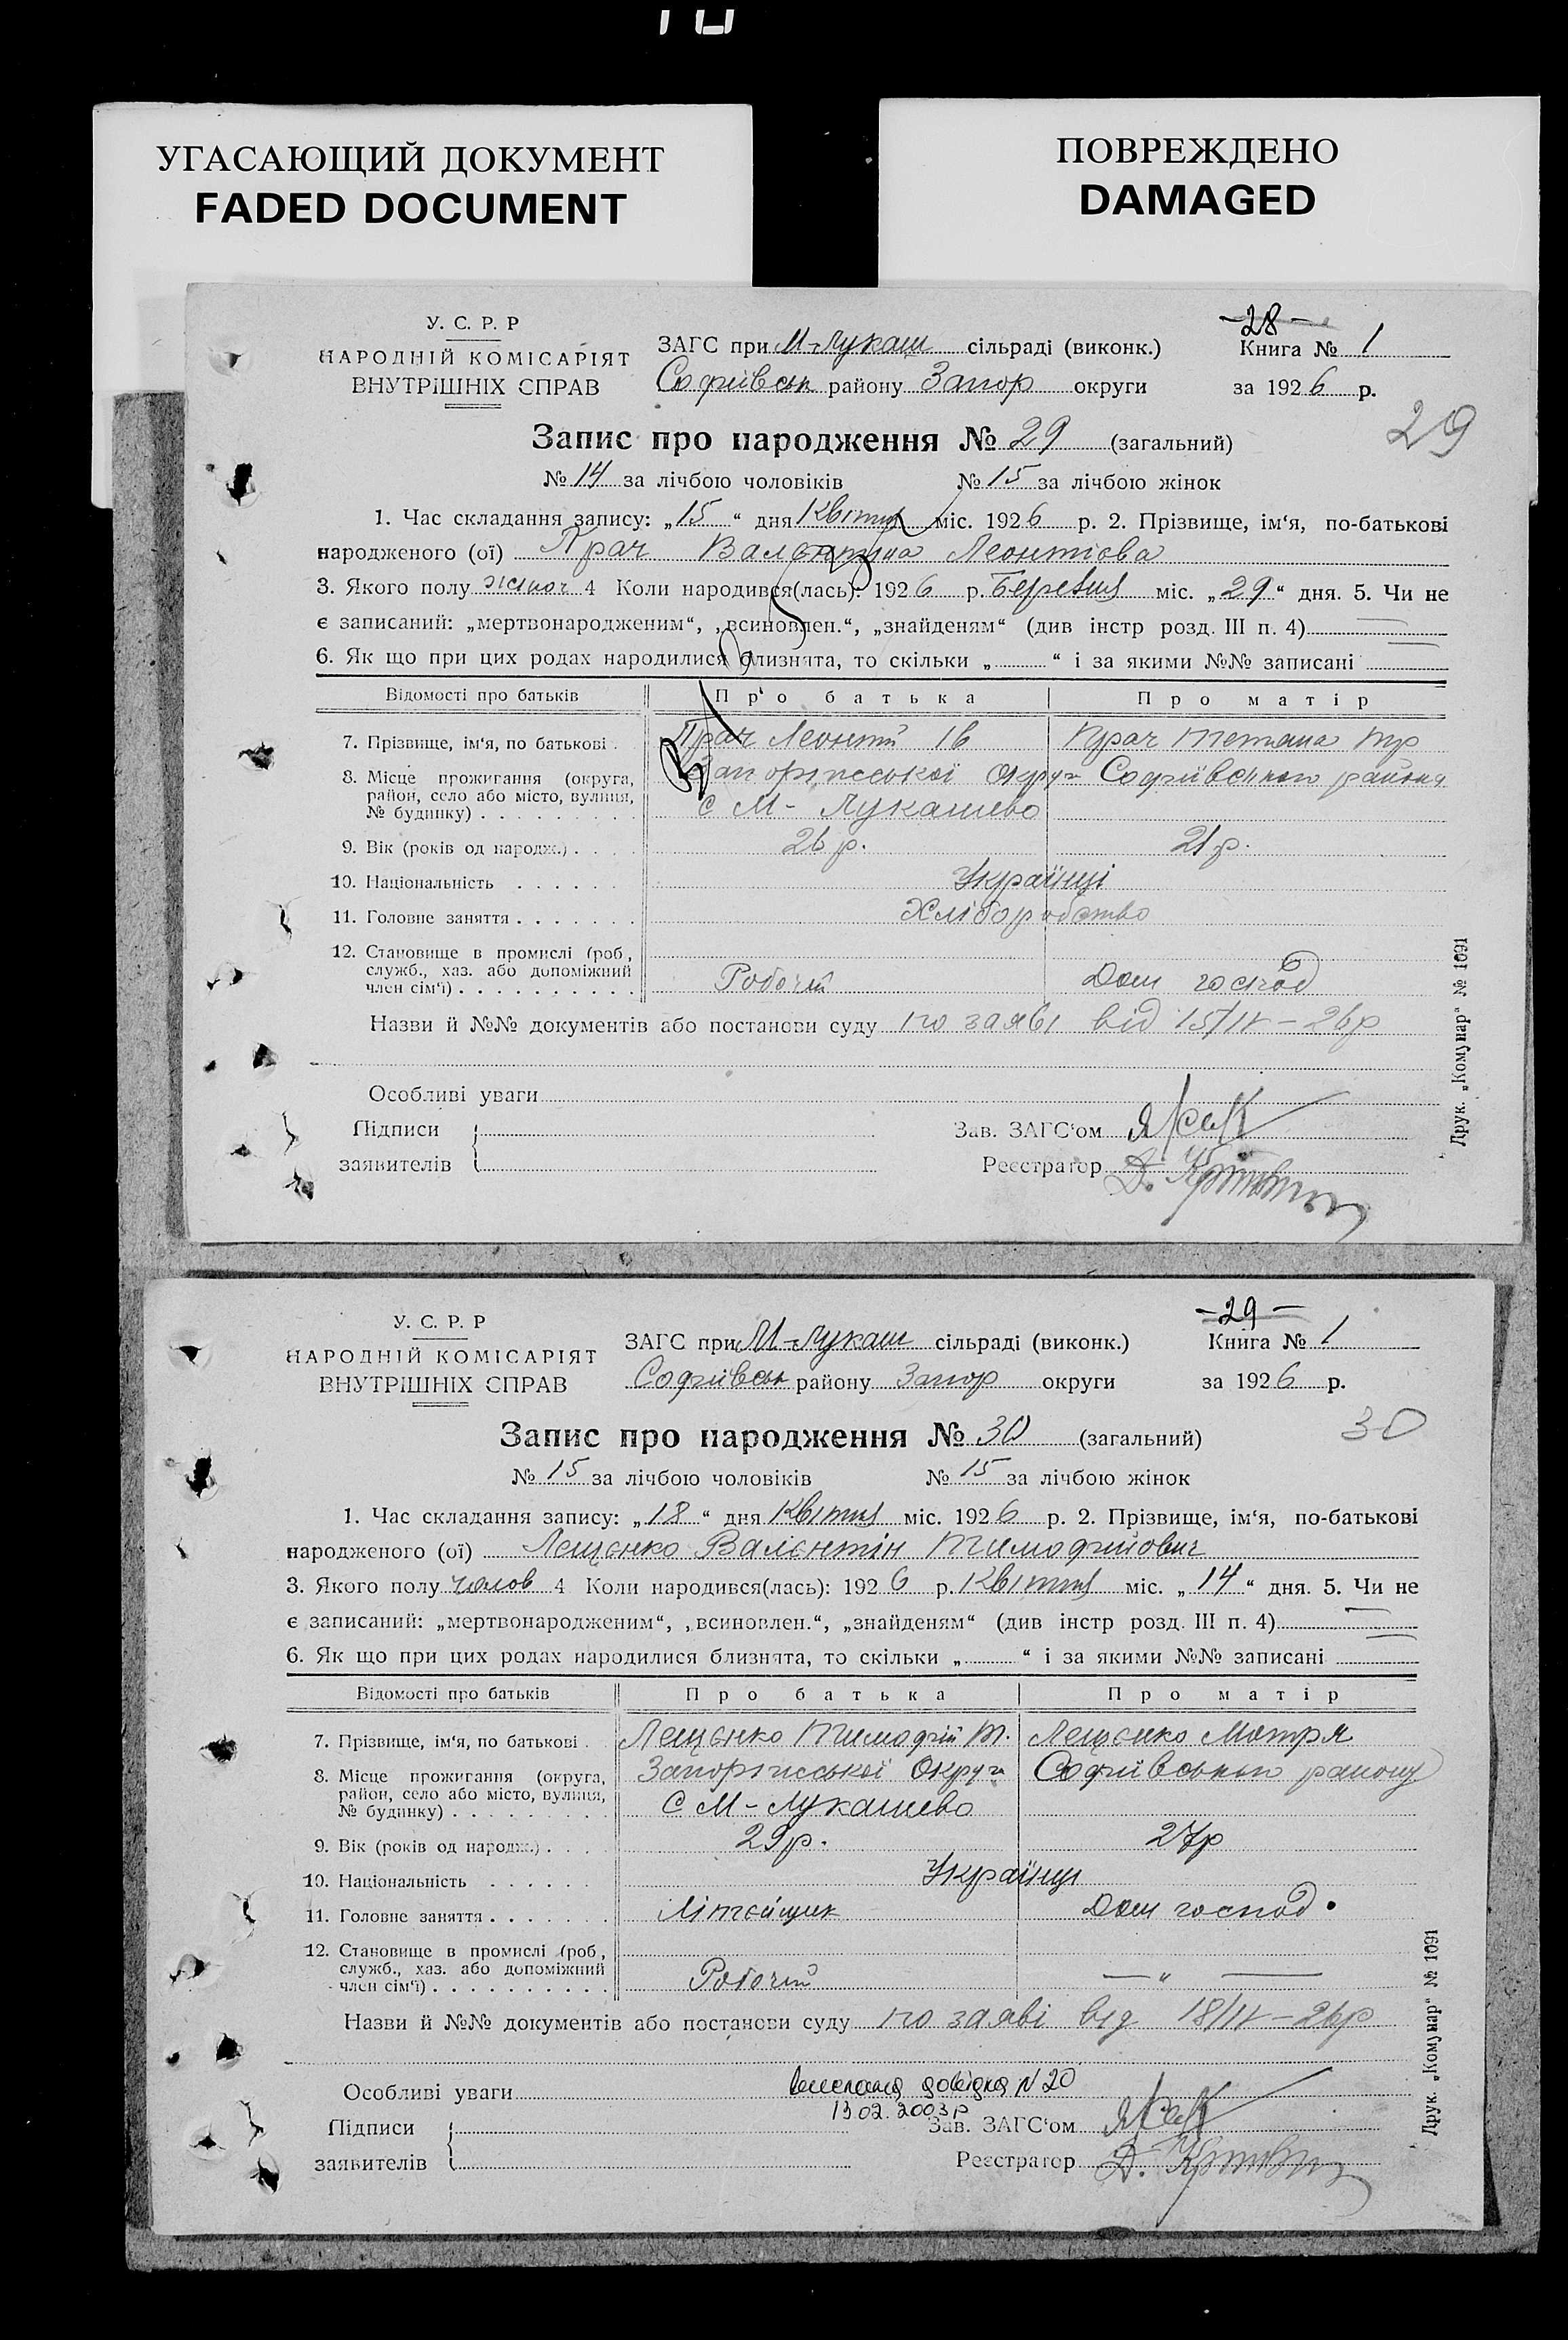 УГАСАЮЩИЙ ДОКУМЕНТ
FADED DOCUMENT
ПОВРЕЖДЕНО
DAMAGED
У. С. Р. Р
НАРОДНІЙ КОМІСАРІЯТ
ВНУТРІШНІХ СПРАВ
ЗАГС при М-Лукаш сільраді (виконк.)
Софиївськ району Запор округи
-28-
Книга № 1
за 1926 р.
29
Запис про народження № 29 (загальний)
№ 14 за лічбою чоловіків № 15 за лічбою жінок
1. Час складання запису: „15“ дня Квітня міс. 1926 р. 2. Прізвище, ім‘я, по-батькові
народженого (ої) Прач Валентина Леонтіова
3. Якого полу жіноч 4 Коли народився(лась): 1926 р. Березня міс. „29“ дня. 5. Чи не
є записаний: „мертвонародженим“, „всиновлен.“, „знайденям“ (див інстр розд. III п. 4)
6. Як що при цих родах народилися близнята, то скільки „ “ і за якими №№ записані
Відомості про батьків Про батька Про матір
7. Прізвище, ім‘я, по батькові Прач Леонтій Ів Прач Тетяна
8. Місце прожигання (округа, район, село або місто, вулиця, № будинку) Запоріжської Округи Софиївського района
с М- Лукашево
9. Вік (років од народж.) 26 р. 21 р.
10. Національність Українці
11. Головне заняття Хліборобство
12. Становище в промислі (роб, служб., хаз. або допоміжний член сім‘ї) Робочій Дом господ
Назви й №№ документів або постанови суду по заяві від 15/IV - 26р
Особливі уваги
Підписи
заявителів
Зав. ЗАГС‘ом
Реєстратор Д.
Друк. „Комунар“ № 1091
У. С. Р. Р
НАРОДНІЙ КОМІСАРІЯТ
ВНУТРІШНІХ СПРАВ
ЗАГС при М-Лукаш сільраді (виконк.)
Софиївськ району Запор округи
-29-
Книга № 1
за 1926 р.
30
Запис про народження № 30 (загальний)
№ 15 за лічбою чоловіків № 15 за лічбою жінок
1. Час складання запису: „18“ дня Квітня міс. 1926 р. 2. Прізвище, ім‘я, по-батькові
народженого (ої) Лещєнко Валєнтін Тимофийович
3. Якого полу чолов 4 Коли народився(лась): 1926 р. Квітня міс. „14“ дня. 5. Чи не
є записаний: „мертвонародженим“, „всиновлен.“, „знайденям“ (див інстр розд. III п. 4)
6. Як що при цих родах народилися близнята, то скільки „ “ і за якими №№ записані
Відомості про батьків Про батька Про матір
7. Прізвище, ім‘я, по батькові Лещєнко Тимофій Т. Лещєнко Мотря
8. Місце прожигання (округа, район, село або місто, вулиця, № будинку) Запоріжської Округи Софиївського району
С М-Лукашево
9. Вік (років од народж.) 29 р. 27р
10. Національність Українці
11. Головне заняття Літєйщик Дом господ.
12. Становище в промислі (роб, служб., хаз. або допоміжний член сім‘ї) Робочій — „ —
Назви й №№ документів або постанови суду по заяві від 18/IV - 26р
Особливі уваги довідка N 20
13.02.2003р
Підписи
заявителів
Зав. ЗАГС‘ом
Реєстратор Д.
Друк. „Комунар“ № 1091